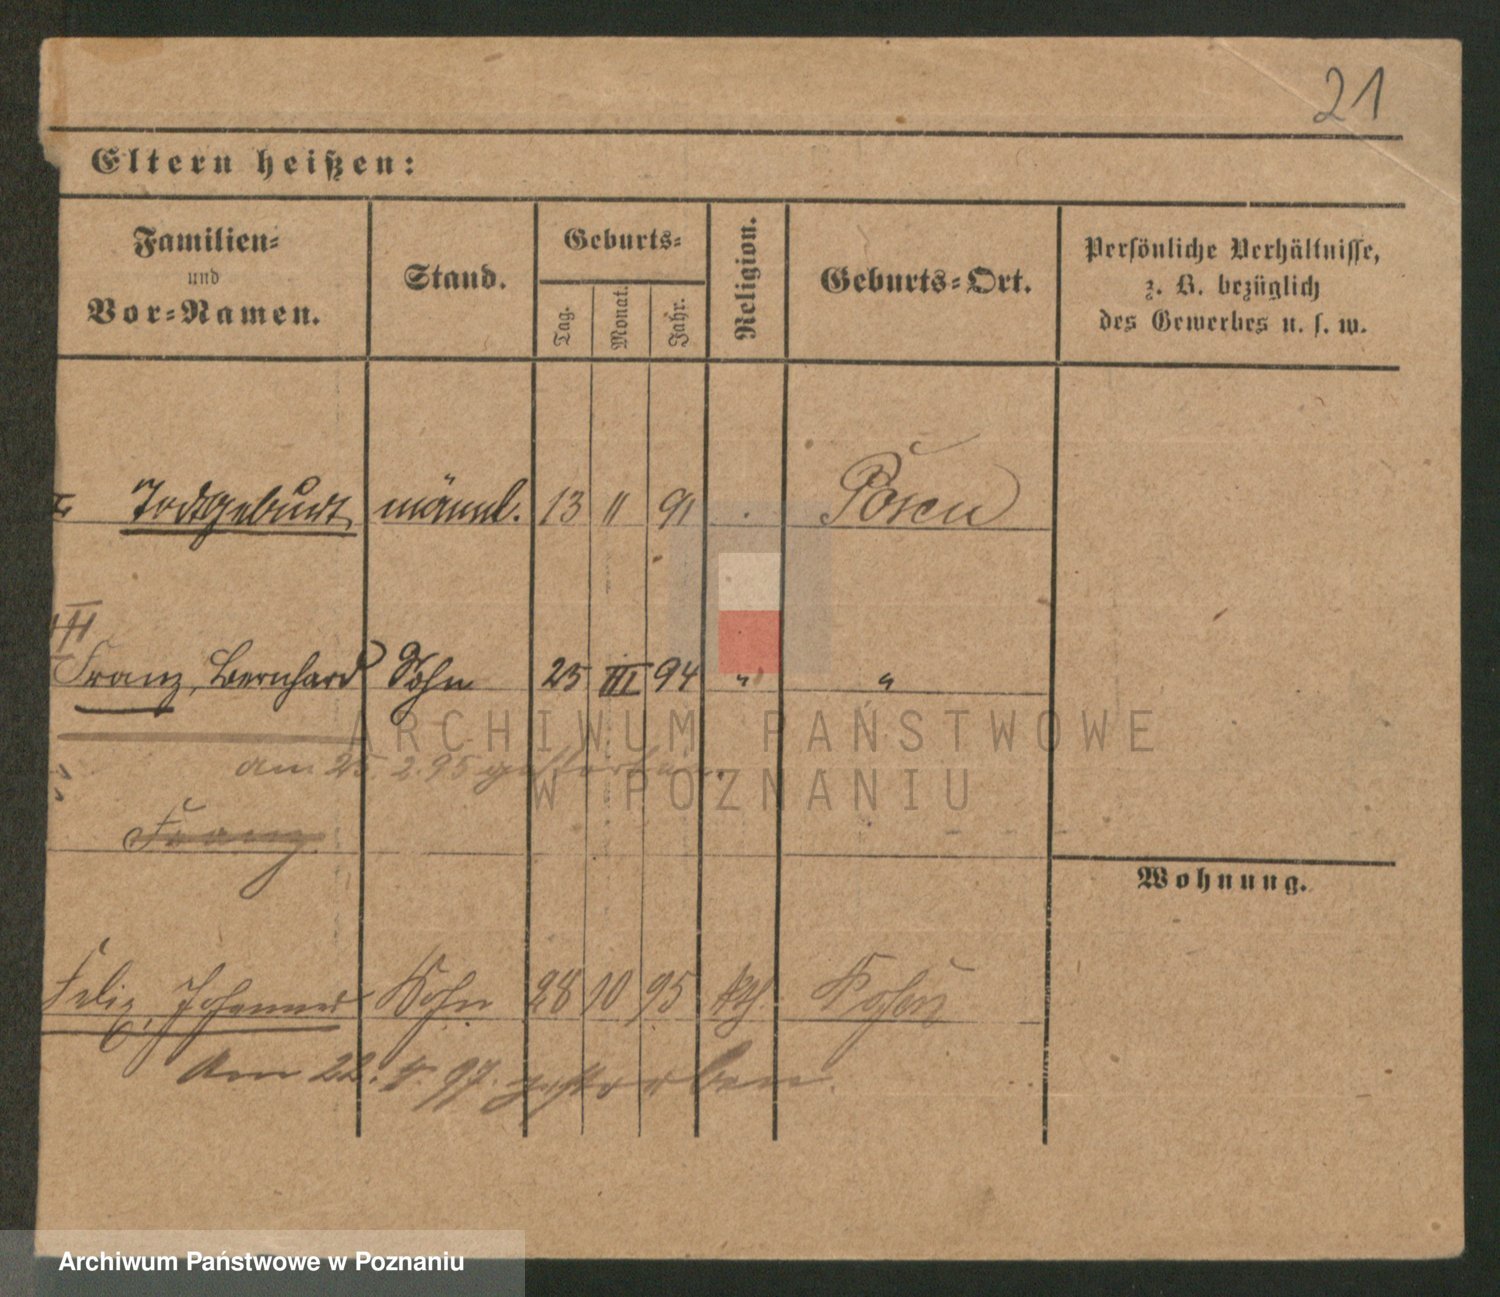 21
Eltern heißen:
Familien-
und
Vor-Namen.
Stand.
Geburts-
Tag.
Monat.
Jahr.
Religion.
Geburts-Ort.
Persönliche Verhältnisse,
z. B. bezüglich
des Gewerbes u. s. w.
Todtgeburt männl. 13 11 91 . Posen
Franz, Bernhard Sohn 25 III 94 " "
am 25. 2. 95 gestorben.
Franz
Wohnung.
Felix, Johannes Sohn 28 10 95 kth. Posen
Am 22. 5. 97. gestorben.
ARCHIWUM PAŃSTWOWE
W POZNANIU
Archiwum Państwowe w Poznaniu